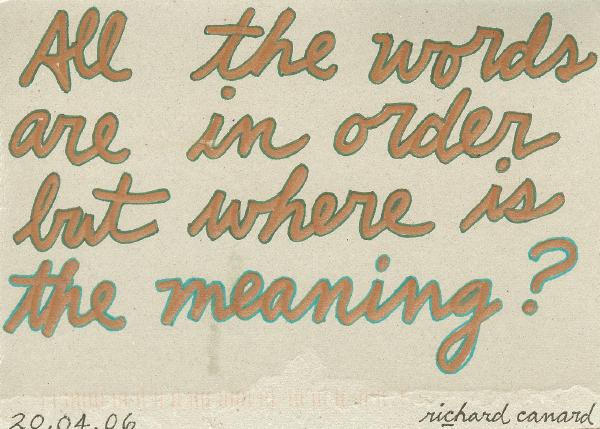 All the words
are in order
but where is
the meaning?
20.04.06 richard canard